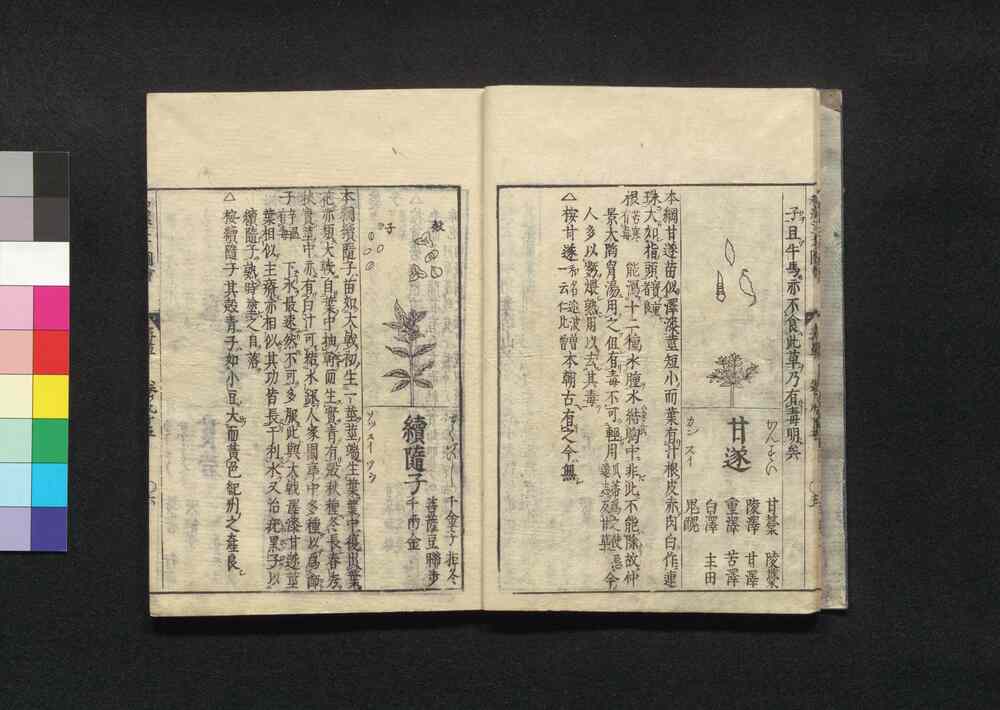 子且牛馬亦不食此草乃有毒明矣
甘遂
カン スイ
かんすい
甘藁 陵藁
陵澤 甘澤
重澤 苦澤
白澤 主田
鬼醜
本綱甘遂苗似澤漆莖短小而葉有汁根皮赤肉白作連
珠大如指頭
根苦寒有毒 能瀉十二種水腫水結胸中非此不能除故仲
景大陷胷湯用之但有毒不可輕用
人多以麪煨熟用以去其毒
△按甘遂一云仁比曾本朝古有之今無
殻
子
續隨子
ソツ スイ ツウ
千金子 拒冬
菩薩豆 聯步
千両金
本綱續隨子苗如大戟初生一莖莖端生葉葉中復出葉
花亦類大戟自葉中抽幹而生實青有殻秋種冬長春秀
秋實莖中亦有白汁可結水銀人家園亭中多種以爲飾
子辛温有毒 下水最速然不可多服此與大戟澤漆甘遂莖
葉相似主療亦相似其功皆長于利水又治疣黒子以
續隨子熟時塗之自落
△按續隨子其殻青子如小豆大而黃色紀州之産良